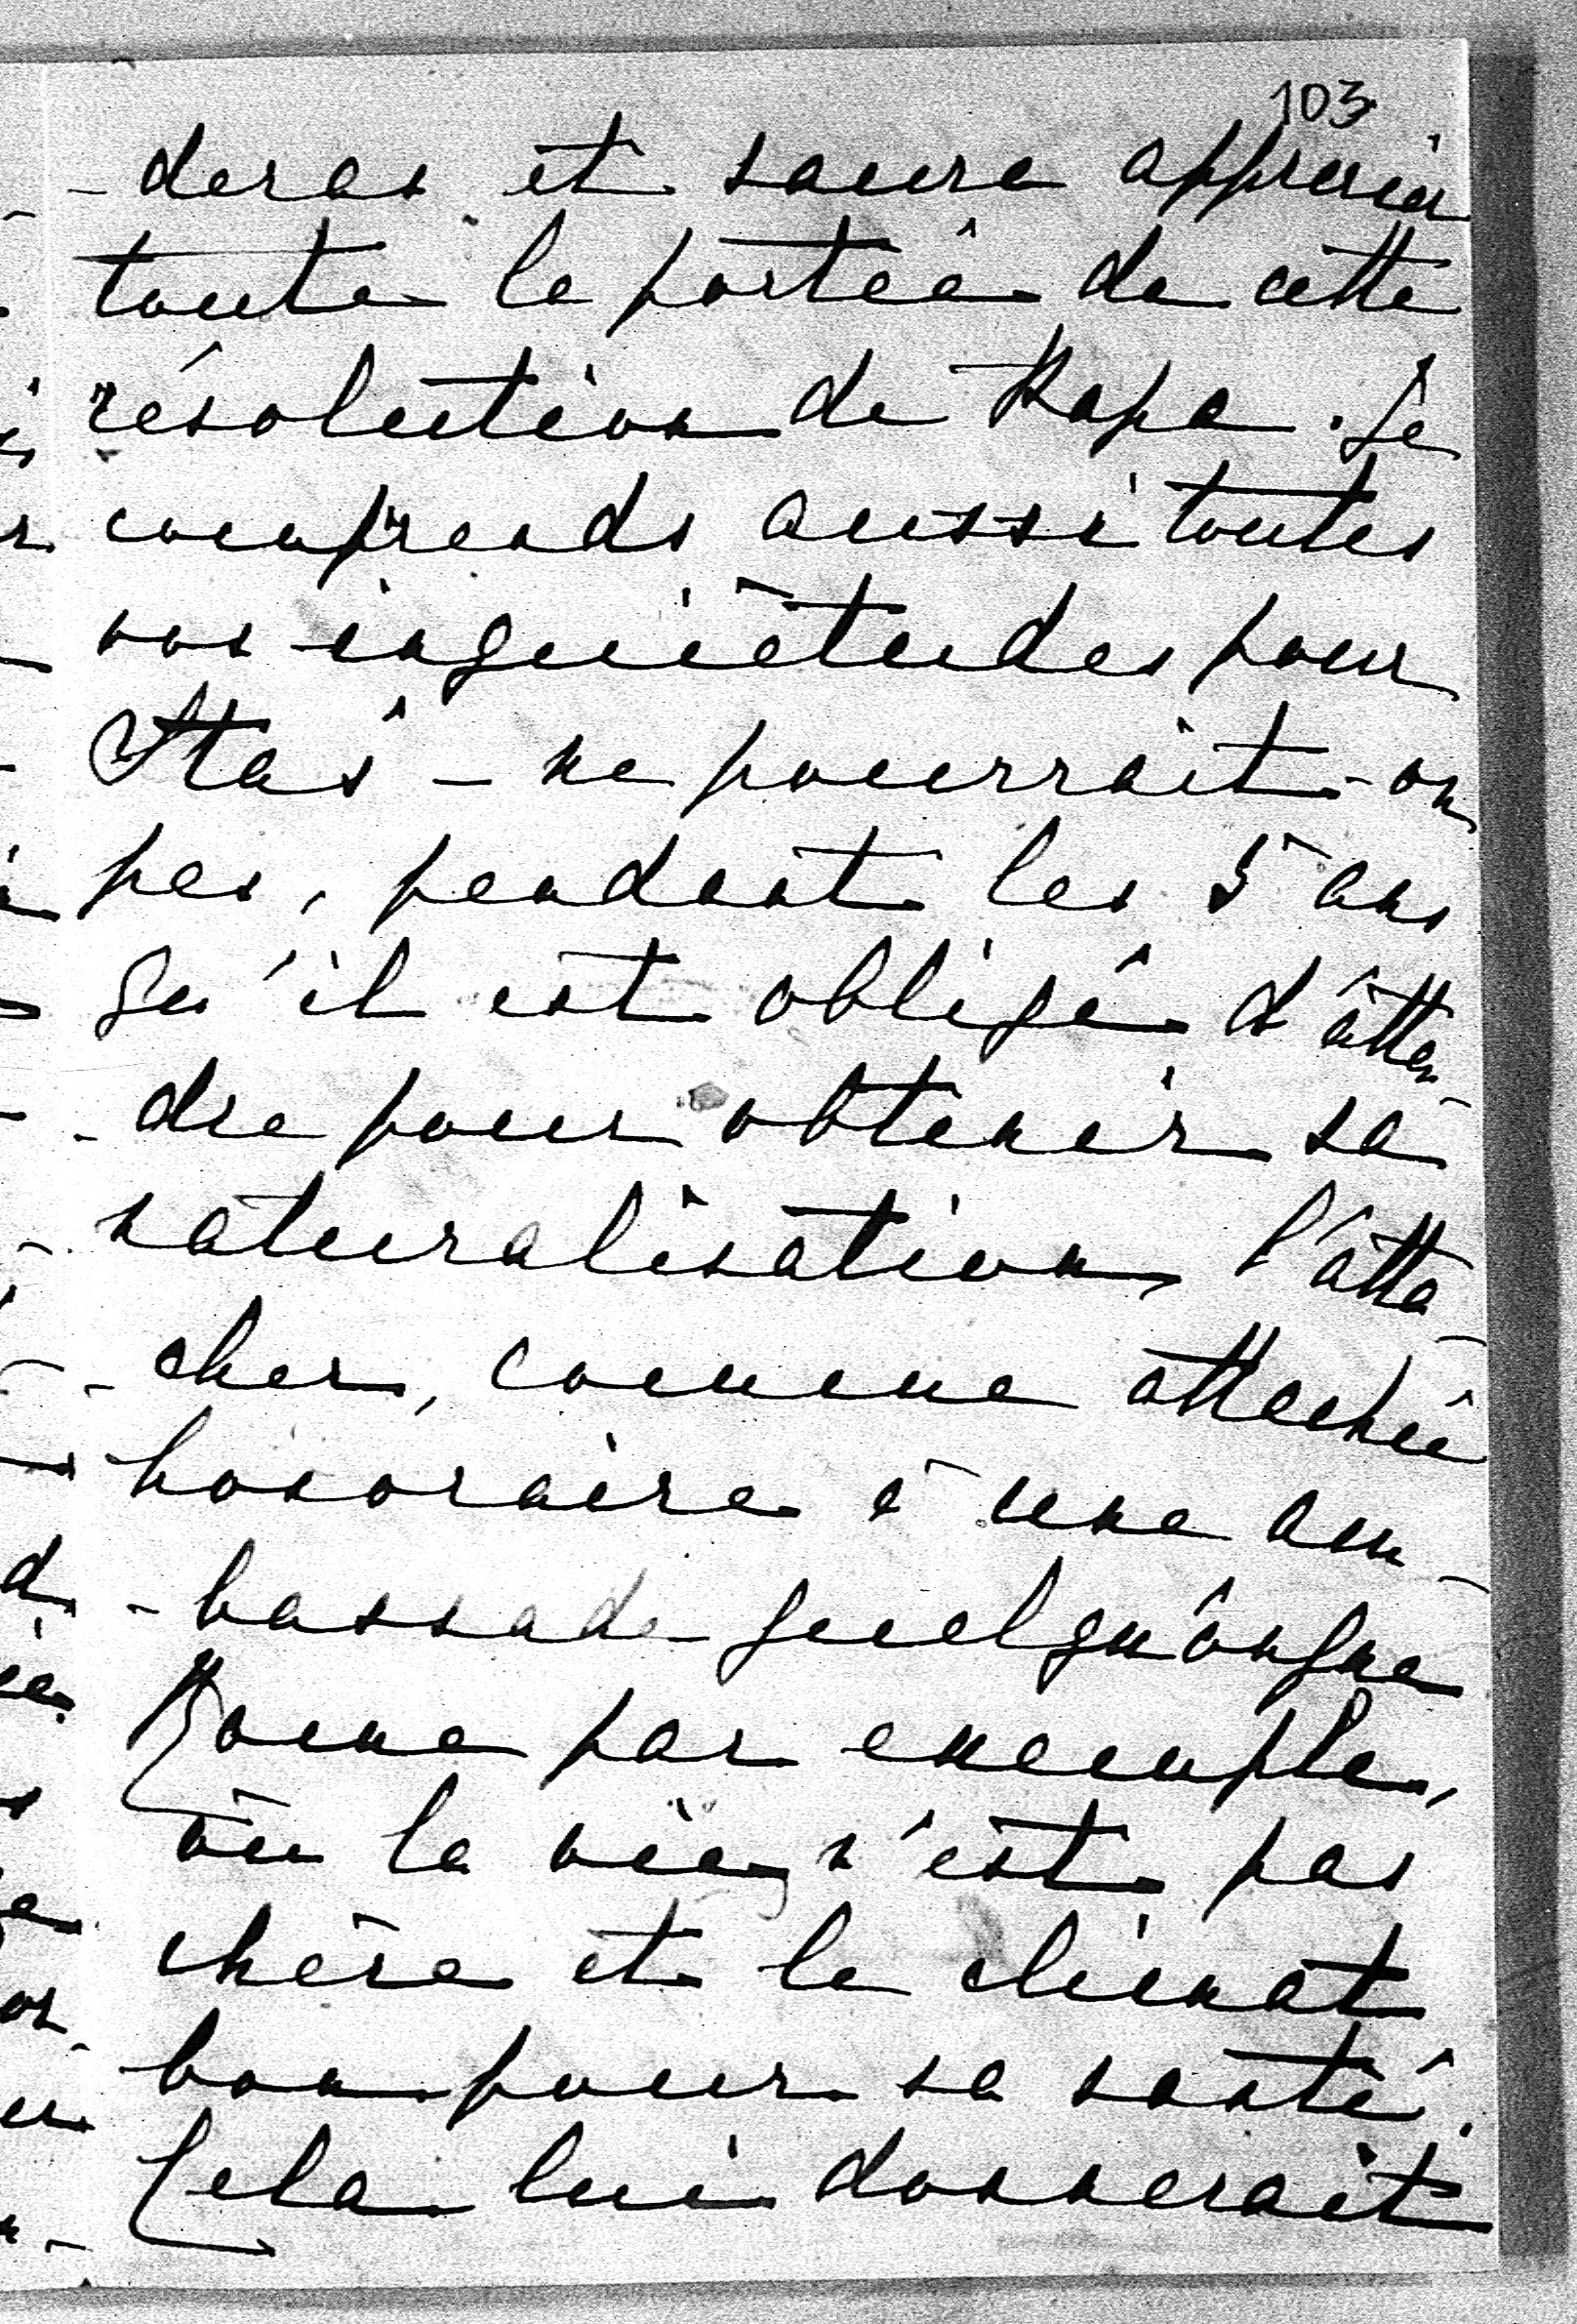 103
-deras et saura apprécier
toute la portée de cette
résolution de Papa. Je
comprends aussi toutes
vos inquiétudes pour
Staś - ne pourrait-on
pas, pendant les 5 ans
qu'il est obligé d'atten-
-dre pour obtenir sa
naturalisation, l'atta-
-cher, comme attaché
honoraire à une am-
-bassade quelqu'onque
Rome par exemple,
où la vie n'est pas
chère et le climat
bon pour sa santé.
Cela lui donnerait